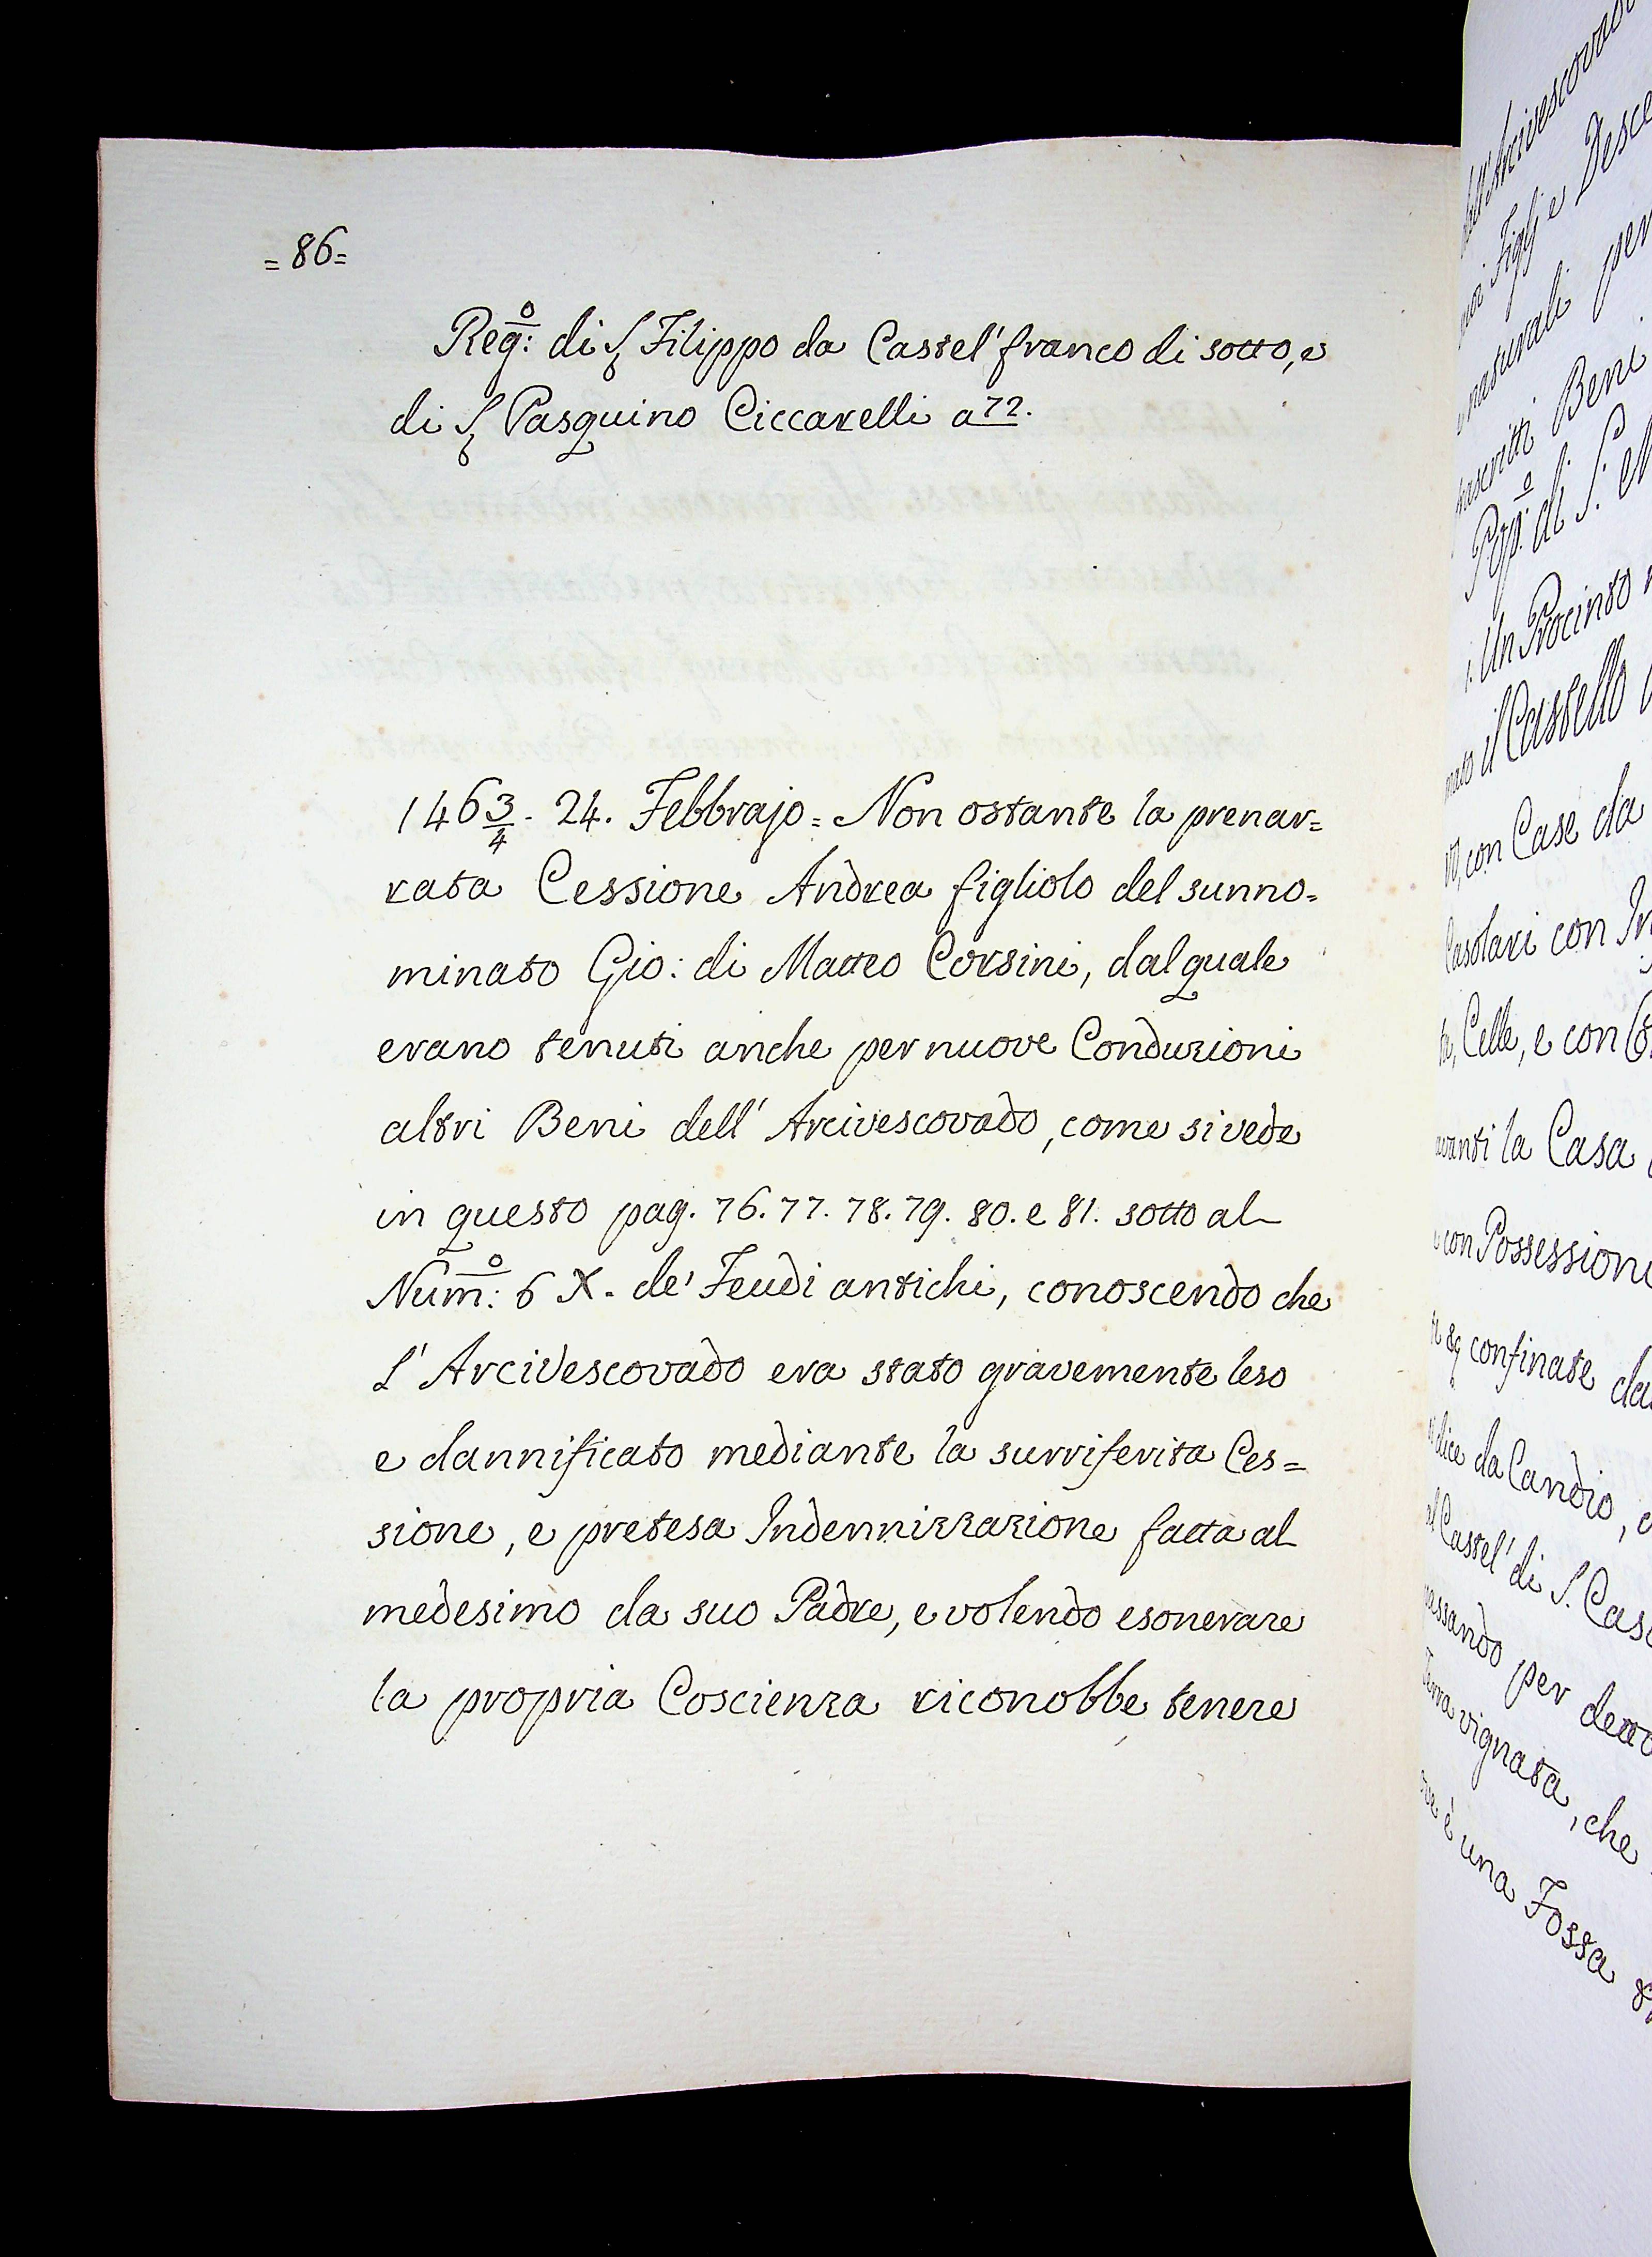 = 86 =
Reg:º di S. Filippo da Castel' franco di sotto, e
di S. Pasquino Ciccarelli a 72.
146 3/4 - 24. Febbrajo = Non ostante la prenar=
rata Cessione Andrea figliolo del sunno=
minato Gio: di Matteo Corsini, dal quale
erano tenuti anche per nuove Conduzioni
altri Beni dell' Arcivescovado, come si vede
in questo pag. 76. 77. 78. 79. 80. e 81. sotto al
Num:º 6 X. de' Feudi antichi, conoscendo che
l' Arcivescovado era stato gravemente leso
e dannificato mediante la surriferita Ces=
sione, e pretesa Indennizzazione fatta al
medesimo da suo Padre, e volendo esonerare
la propria Coscienza riconobbe tenere
dell' Arcivescovado
Figlj e Desce
naturali per
Beni
Pop:º di S.
Un Procinto
il Castello
con Case da
Casolari con
Celle, e con
avanti la Casa
con Possessioni
confinate da
dice da Candio,
Castel' di S. Casc
per detto
Terra vignata, che
è una Fossa